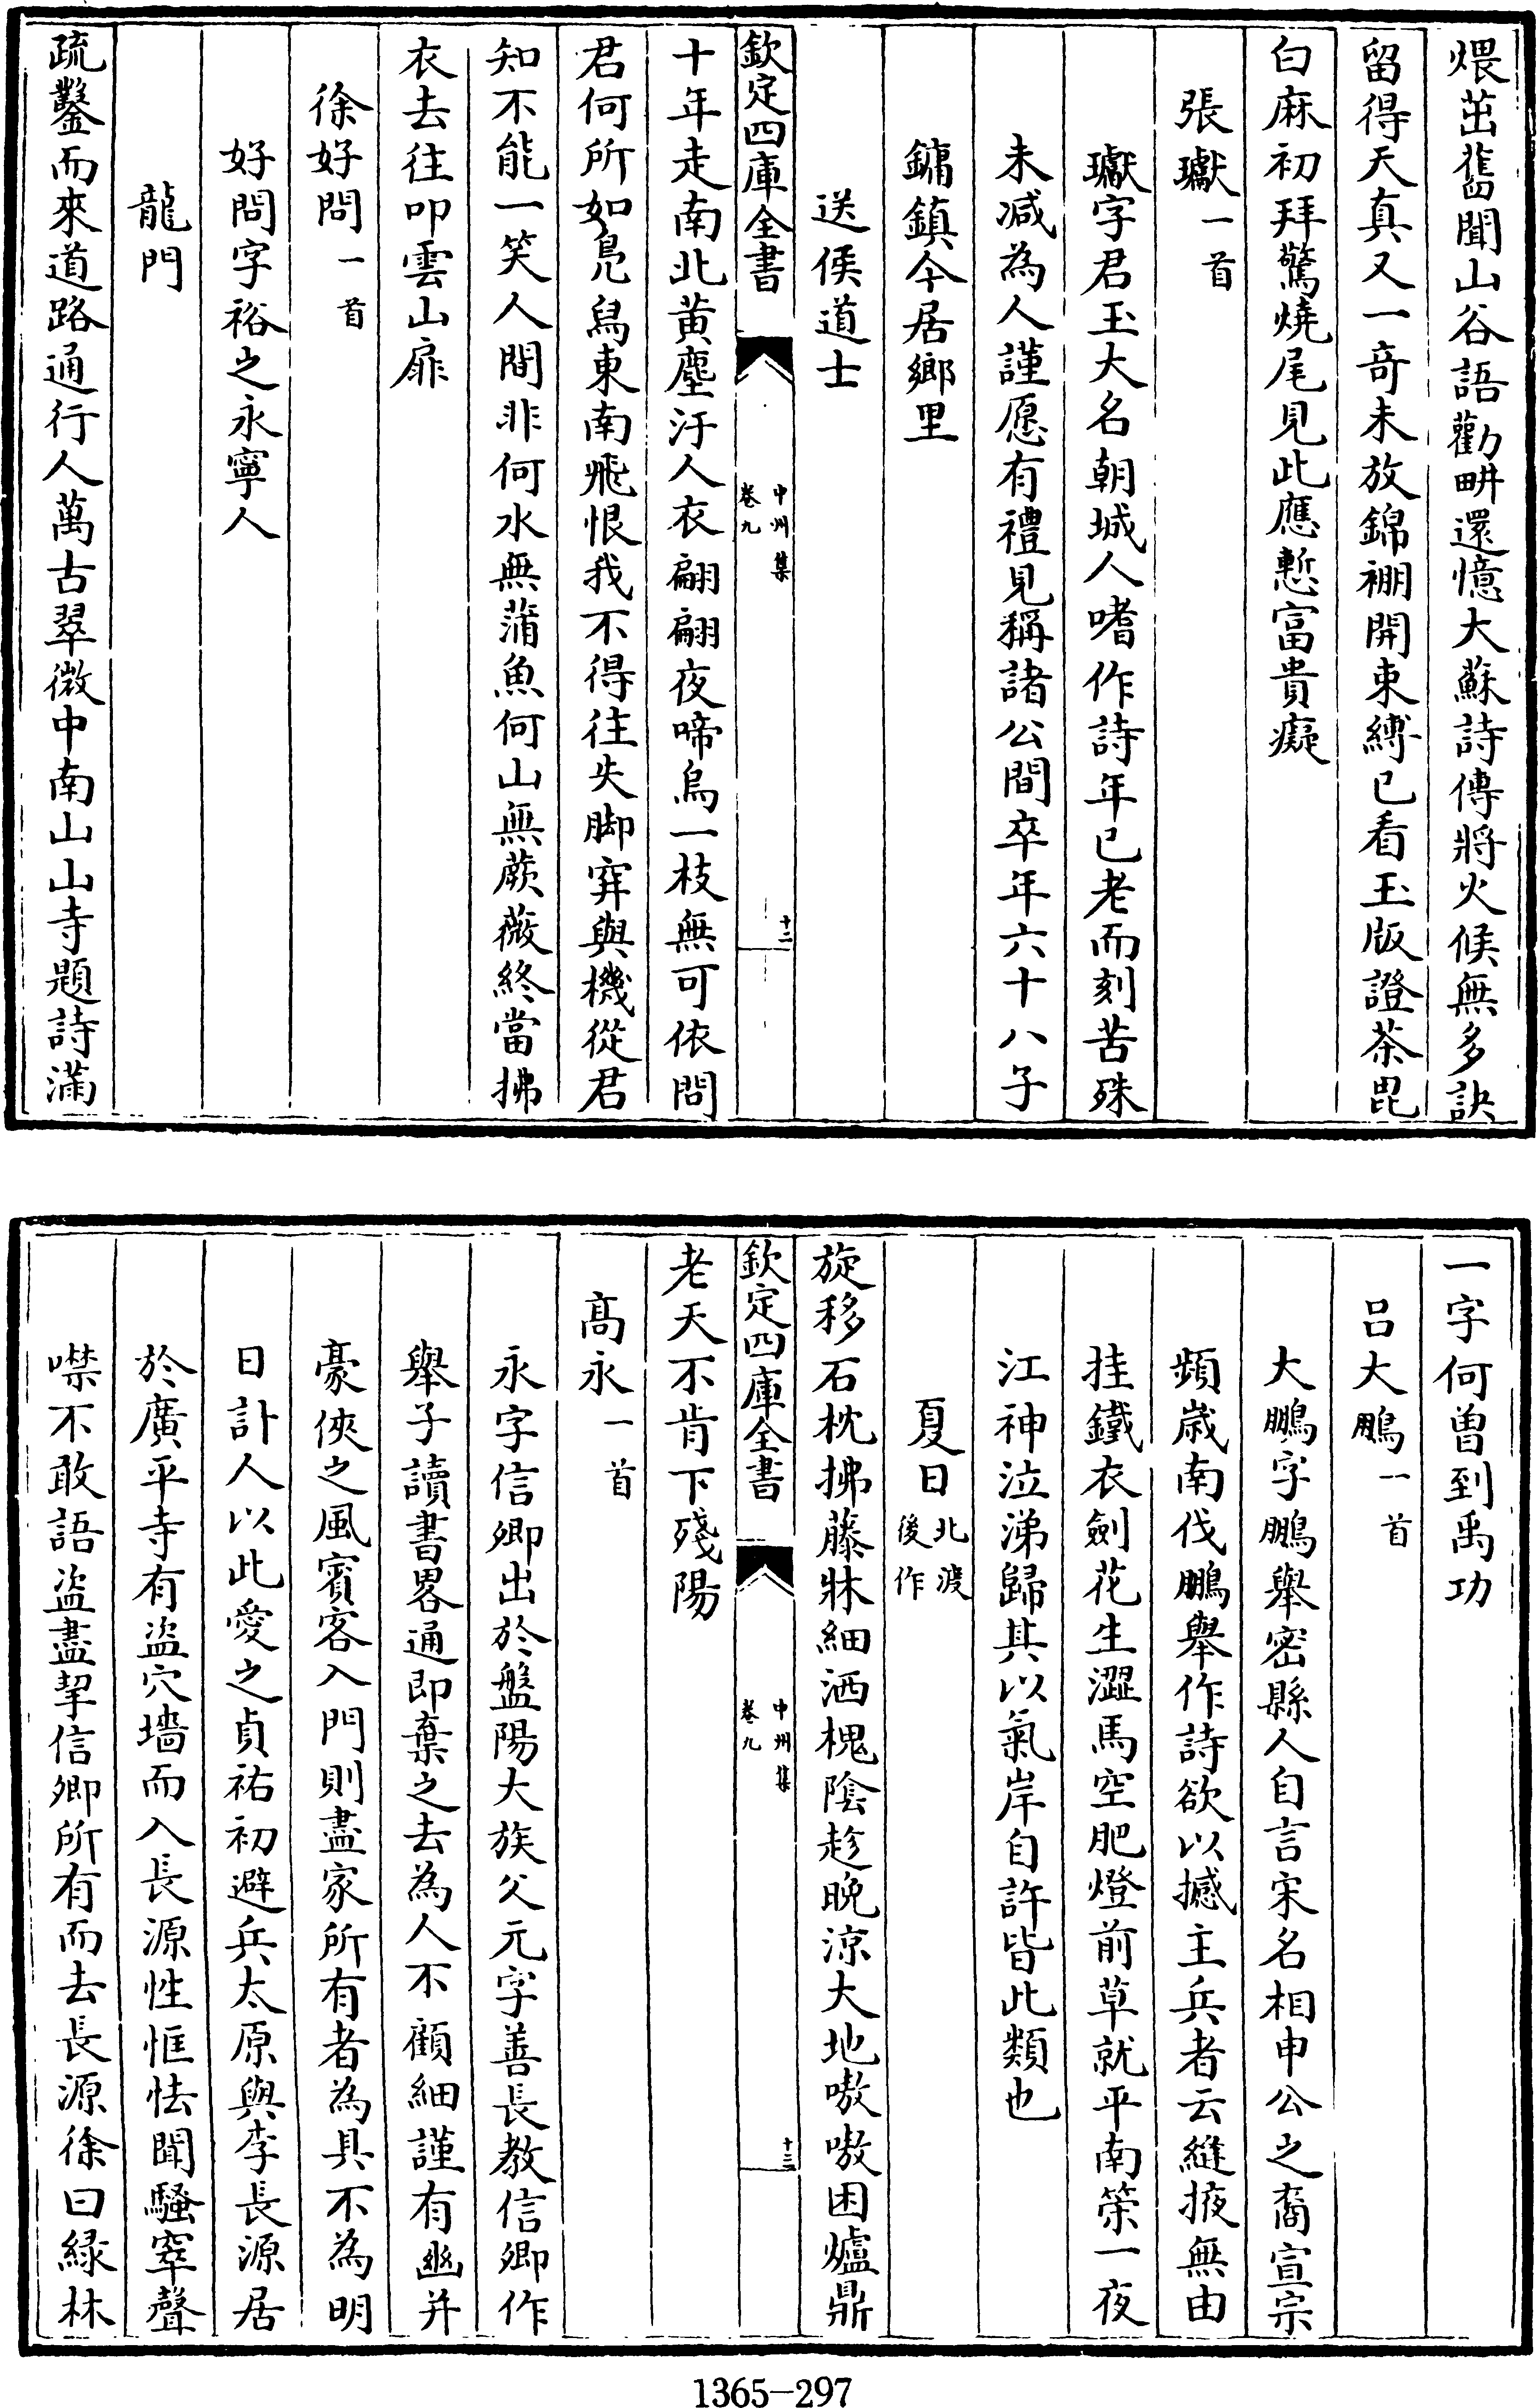 煨茁舊聞山谷語勸畊還憶大蘇詩傳將火候無多訣
留得天真又一奇未放錦棚開束縛已看玉版證茶毘
白麻初拜驚燒尾見此應慙富貴癡
張瓛一首
瓛字君玉大名朝城人嗜作詩年已老而刻苦殊
未減為人謹愿有禮見稱諸公間卒年六十八子
鏞鎮今居鄉里
送侯道士
欽定四庫全書
中州集
卷九
十二
十年走南北黄塵汙人衣翩翩夜啼烏一枝無可依問
君何所如鳬舄東南飛恨我不得往失脚穽與機從君
知不能一笑人間非何水無蒲魚何山無蕨薇終當拂
衣去往叩雲山扉
徐好問一首
好問字裕之永寧人
龍門
疏鑿而來道路通行人萬古翠微中南山山寺題詩滿
一字何曽到禹功
吕大鵬一首
大鵬字鵬舉密縣人自言宋名相申公之裔宣宗
頻歳南伐鵬舉作詩欲以撼主兵者云縫掖無由
挂鐵衣劍花生澀馬空肥燈前草就平南策一夜
江神泣涕歸其以氣岸自許皆此類也
夏日北渡後作
旋移石枕拂藤牀細洒槐陰趁晚涼大地嗷嗷困爐鼎
欽定四庫全書
中州集
卷九
十三
老天不肯下殘陽
髙永一首
永字信卿出於盤陽大族父元字善長教信卿作
舉子讀書畧通即棄之去為人不顧細謹有幽并
豪俠之風賓客入門則盡家所有者為具不為明
日計人以此愛之貞祐初避兵太原與李長源居
於廣平寺有盜穴墻而入長源性恇怯聞騷窣聲
噤不敢語盜盡挈信卿所有而去長源徐曰緑林
1365-297